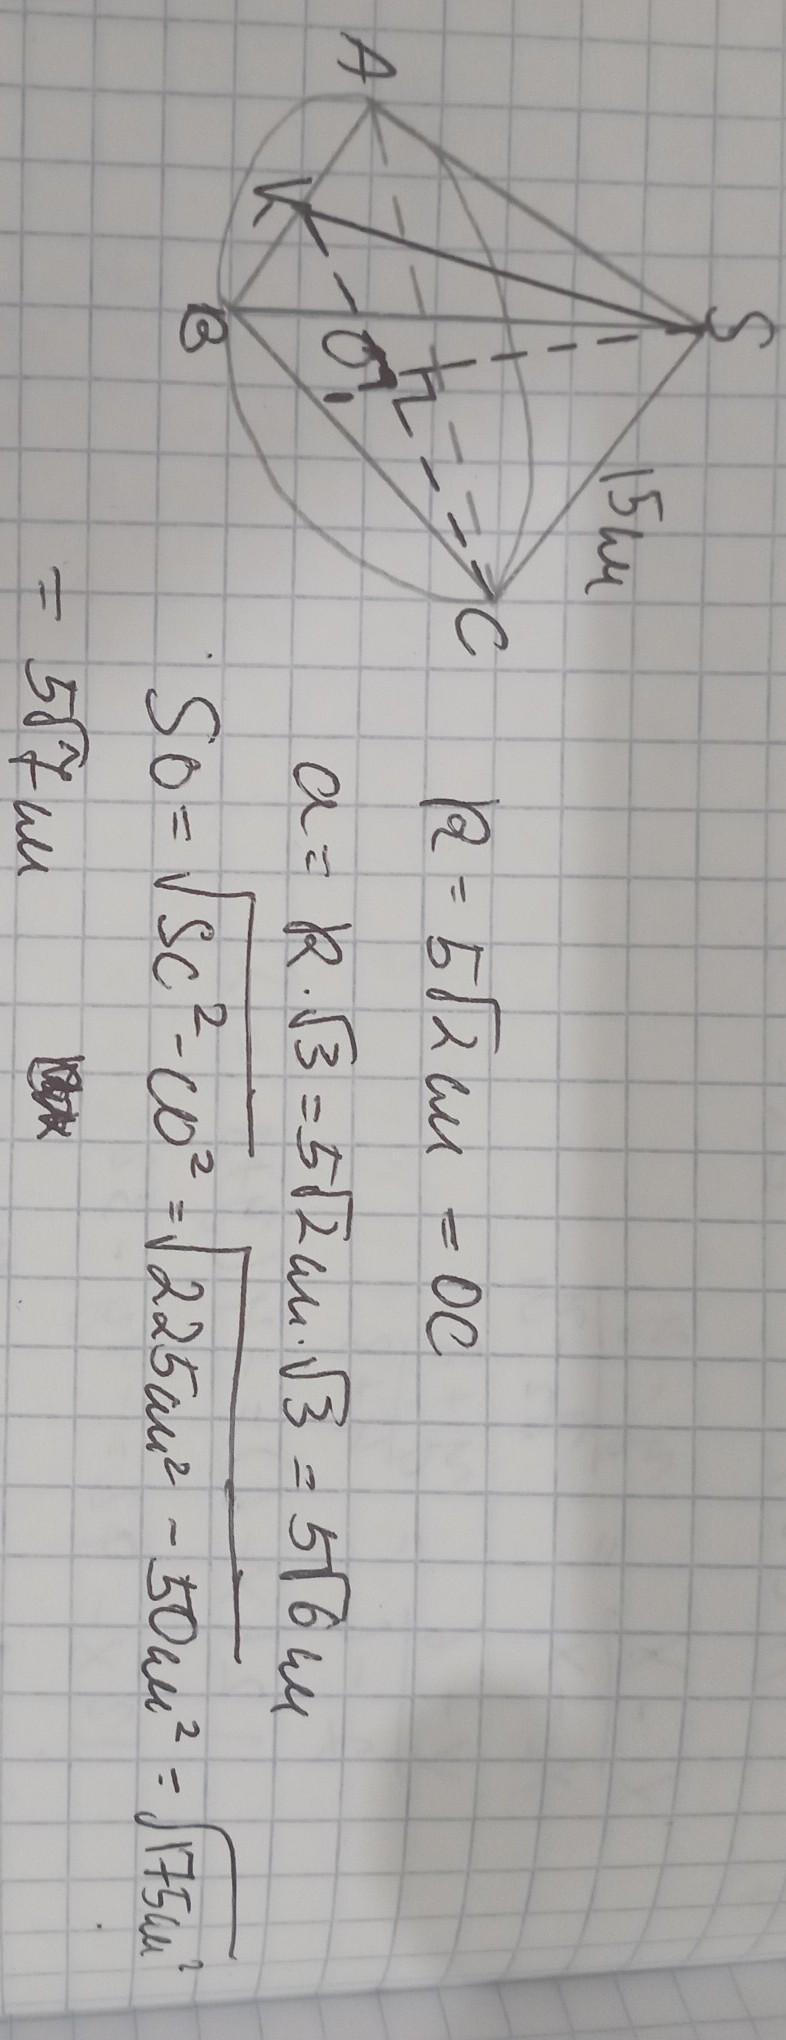 S
A
15 см
K
O
B
C
R = 5√2 см = OC
a = R·√3 = 5√2 см·√3 = 5√6 см
SO = √SC² - CO² = √225см² - 50см² = √175см²
= 5√7 см